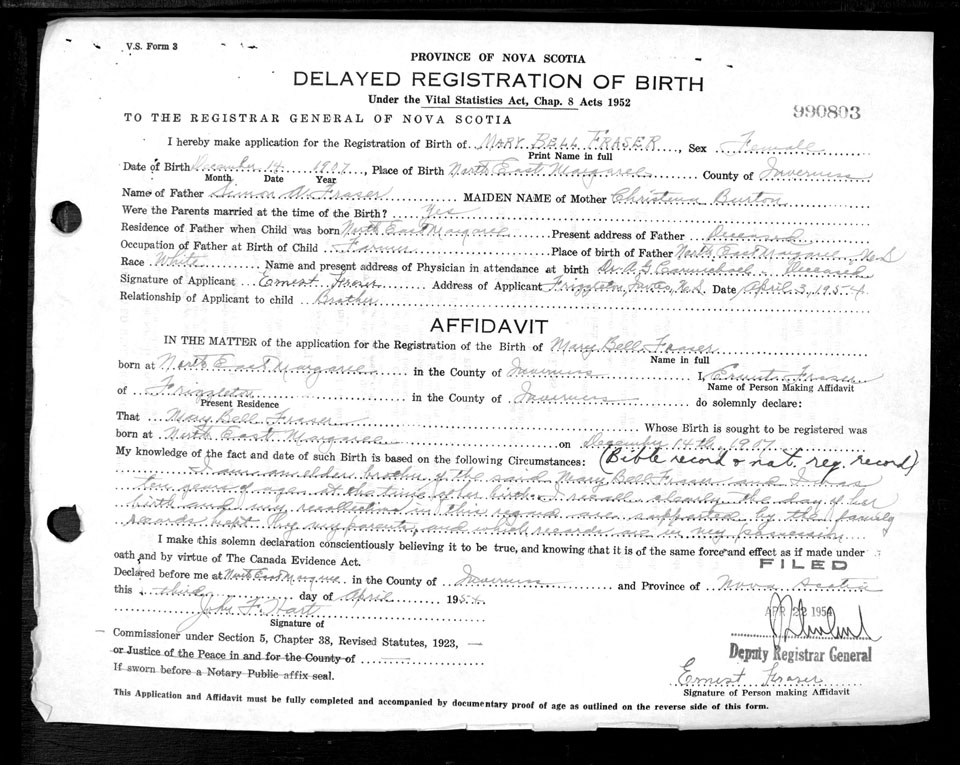 V.S. Form 3
PROVINCE OF NOVA SCOTIA
DELAYED REGISTRATION OF BIRTH
Under the Vital Statistics Act, Chap. 8 Acts 1952
990803
TO THE REGISTRAR GENERAL OF NOVA SCOTIA
I hereby make application for the Registration of Birth of MARY BELL FRASER, Sex Female
Print Name in full
Date of Birth December 14 1907, Place of Birth North East Margaree County of Inverness
Month Date Year
Name of Father Simon W. Fraser MAIDEN NAME of Mother Christina Burton
Were the Parents married at the time of the Birth? Yes
Residence of Father when Child was born North East Margaree Present address of Father Deceased
Occupation of Father at Birth of Child Farmer Place of birth of Father North East Margaree, N.S
Race White Name and present address of Physician in attendance at birth Dr. A. G. Carmichael - Deceased
Signature of Applicant Ernest Fraser Address of Applicant Frizzleton, Inv. Co, N.S. Date April 3, 1954
Relationship of Applicant to child Brother
AFFIDAVIT
IN THE MATTER of the application for the Registration of the Birth of Mary Bell Fraser
Name in full
born at North East Margaree in the County of Inverness I, Ernest Fraser
Name of Person Making Affidavit
of Frizzleton in the County of Inverness do solemnly declare:
Present Residence
That Mary Bell Fraser Whose Birth is sought to be registered was
born at North East Margaree on December 14th, 1907
My knowledge of the fact and date of such Birth is based on the following Circumstances: (Bible record & nat. reg. record)
I am an elder brother of the said Mary Bell Fraser and I was
ten years of age at the time of her birth. I recall clearly the day of her
birth and my recollection in this regard are supported by the family
records kept by my parents, and which records are in my possession
I make this solemn declaration conscientiously believing it to be true, and knowing that it is of the same force and effect as if made under
oath and by virtue of The Canada Evidence Act.
FILED
Declared before me at North East Margaree in the County of Inverness and Province of Nova Scotia
this third day of April 1954
APR 22 1954
John F. Hart
Signature of
Deputy Registrar General
Commissioner under Section 5, Chapter 38, Revised Statutes, 1923,
or Justice of the Peace in and for the County of
If sworn before a Notary Public affix seal.
Ernest Fraser
Signature of Person making Affidavit
This Application and Affidavit must be fully completed and accompanied by documentary proof of age as outlined on the reverse side of this form.